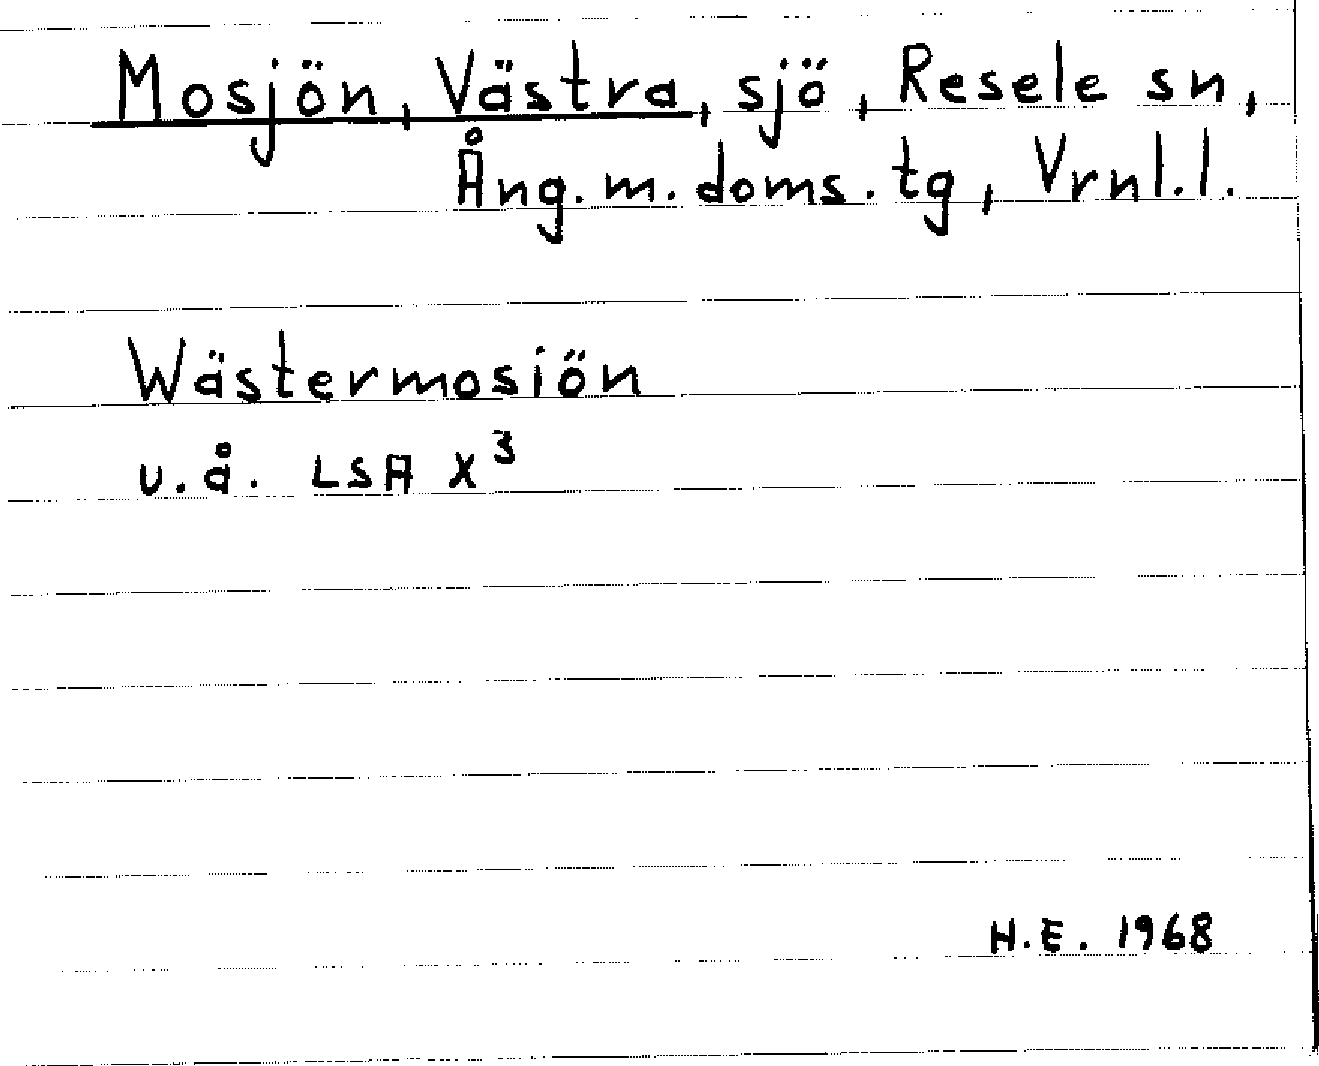 Mosjön, Västra, sjö, Resele sn,
Ång. m. doms. tg, Vrnl. l.
Wästermosiön
u. å. LSA X³
H.E. 1968